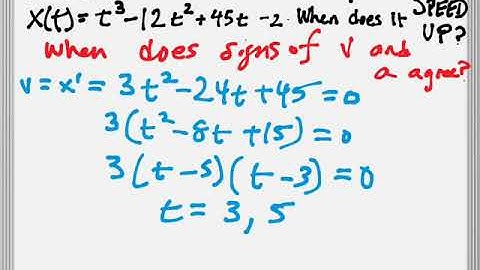 SPEED
X(t) = t³-12t²+45t-2. When does it UP?
When does signs of v and
a agree?
v = x' = 3t²-24t+45=0
3(t²-8t+15)=0
3(t-5)(t-3)=0
t=3,5